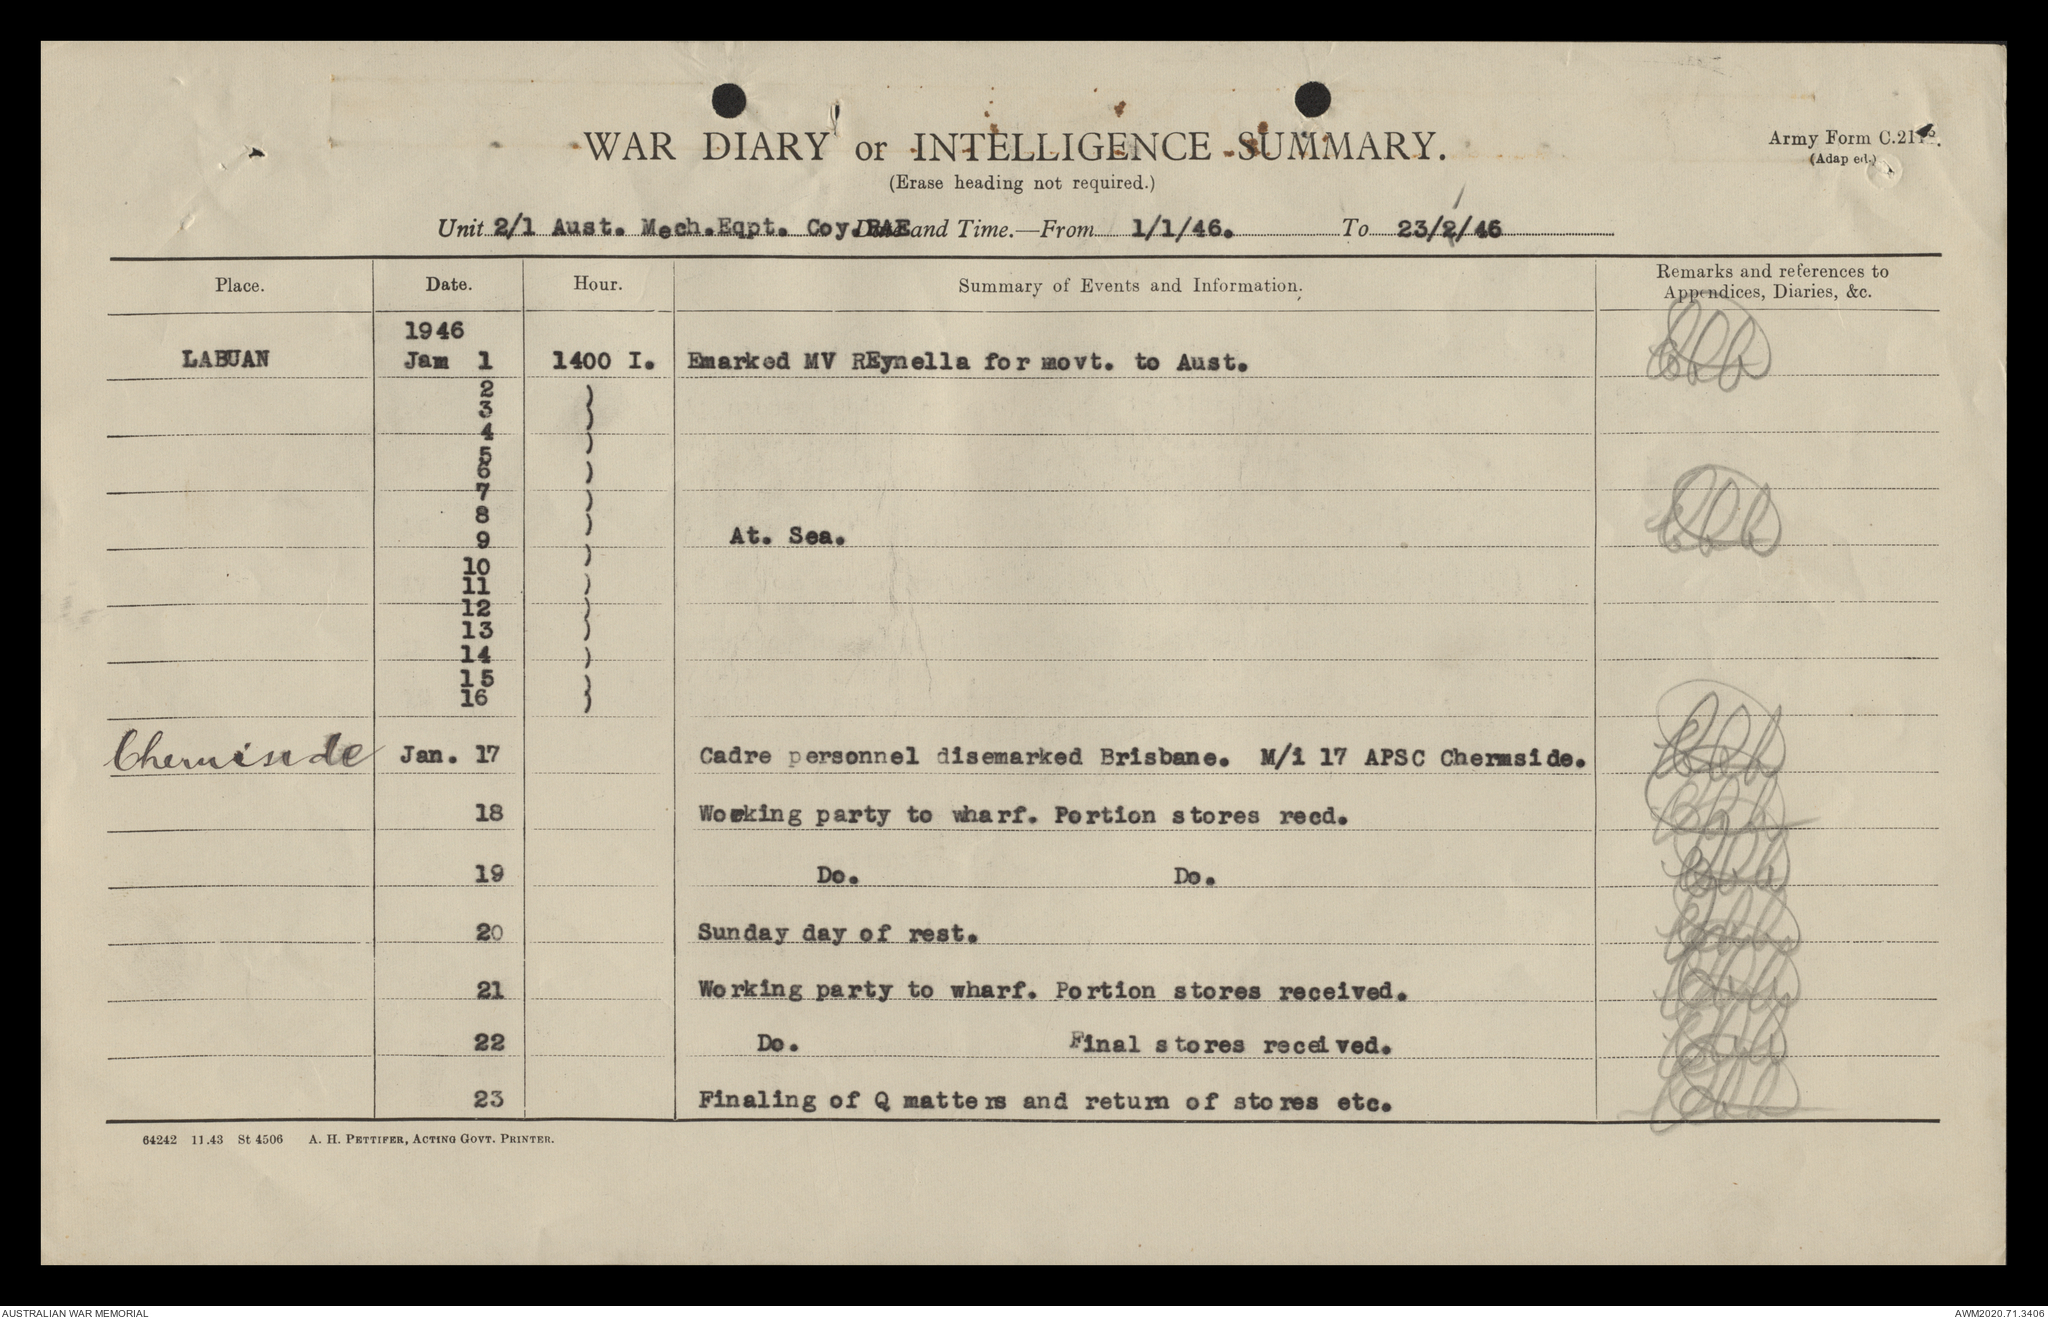 WAR DIARY or INTELLIGENCE SUMMARY.
Army Form C.2118.
(Adap ed.)
(Erase heading not required.)
Unit 2/1 Aust. Mech.Eqpt. Coy.RAE Date and Time.—From 1/1/46. To 23/1/46
Place. Date. Hour. Summary of Events and Information. Remarks and references to
Appendices, Diaries, &c.
1946
LABUAN Jam 1 1400 I. Emarked MV REynella for movt. to Aust.
2 )
3 )
4 )
5
6 )
7 )
8 )
9 ) At. Sea.
10
11 )
12 )
13 )
14 )
15 )
16 )
Chermside Jan. 17 Cadre personnel disemarked Brisbane. M/i 17 APSC Chermside.
18 Working party to wharf. Portion stores recd.
19 Do. Do.
20 Sunday day of rest.
21 Working party to wharf. Portion stores received.
22 Do. Final stores received.
23 Finaling of Q matters and return of stores etc.
64242 11.43 St 4506 A. H. PETTIFER, ACTING GOVT. PRINTER.
AUSTRALIAN WAR MEMORIAL AWM2020.71.3406